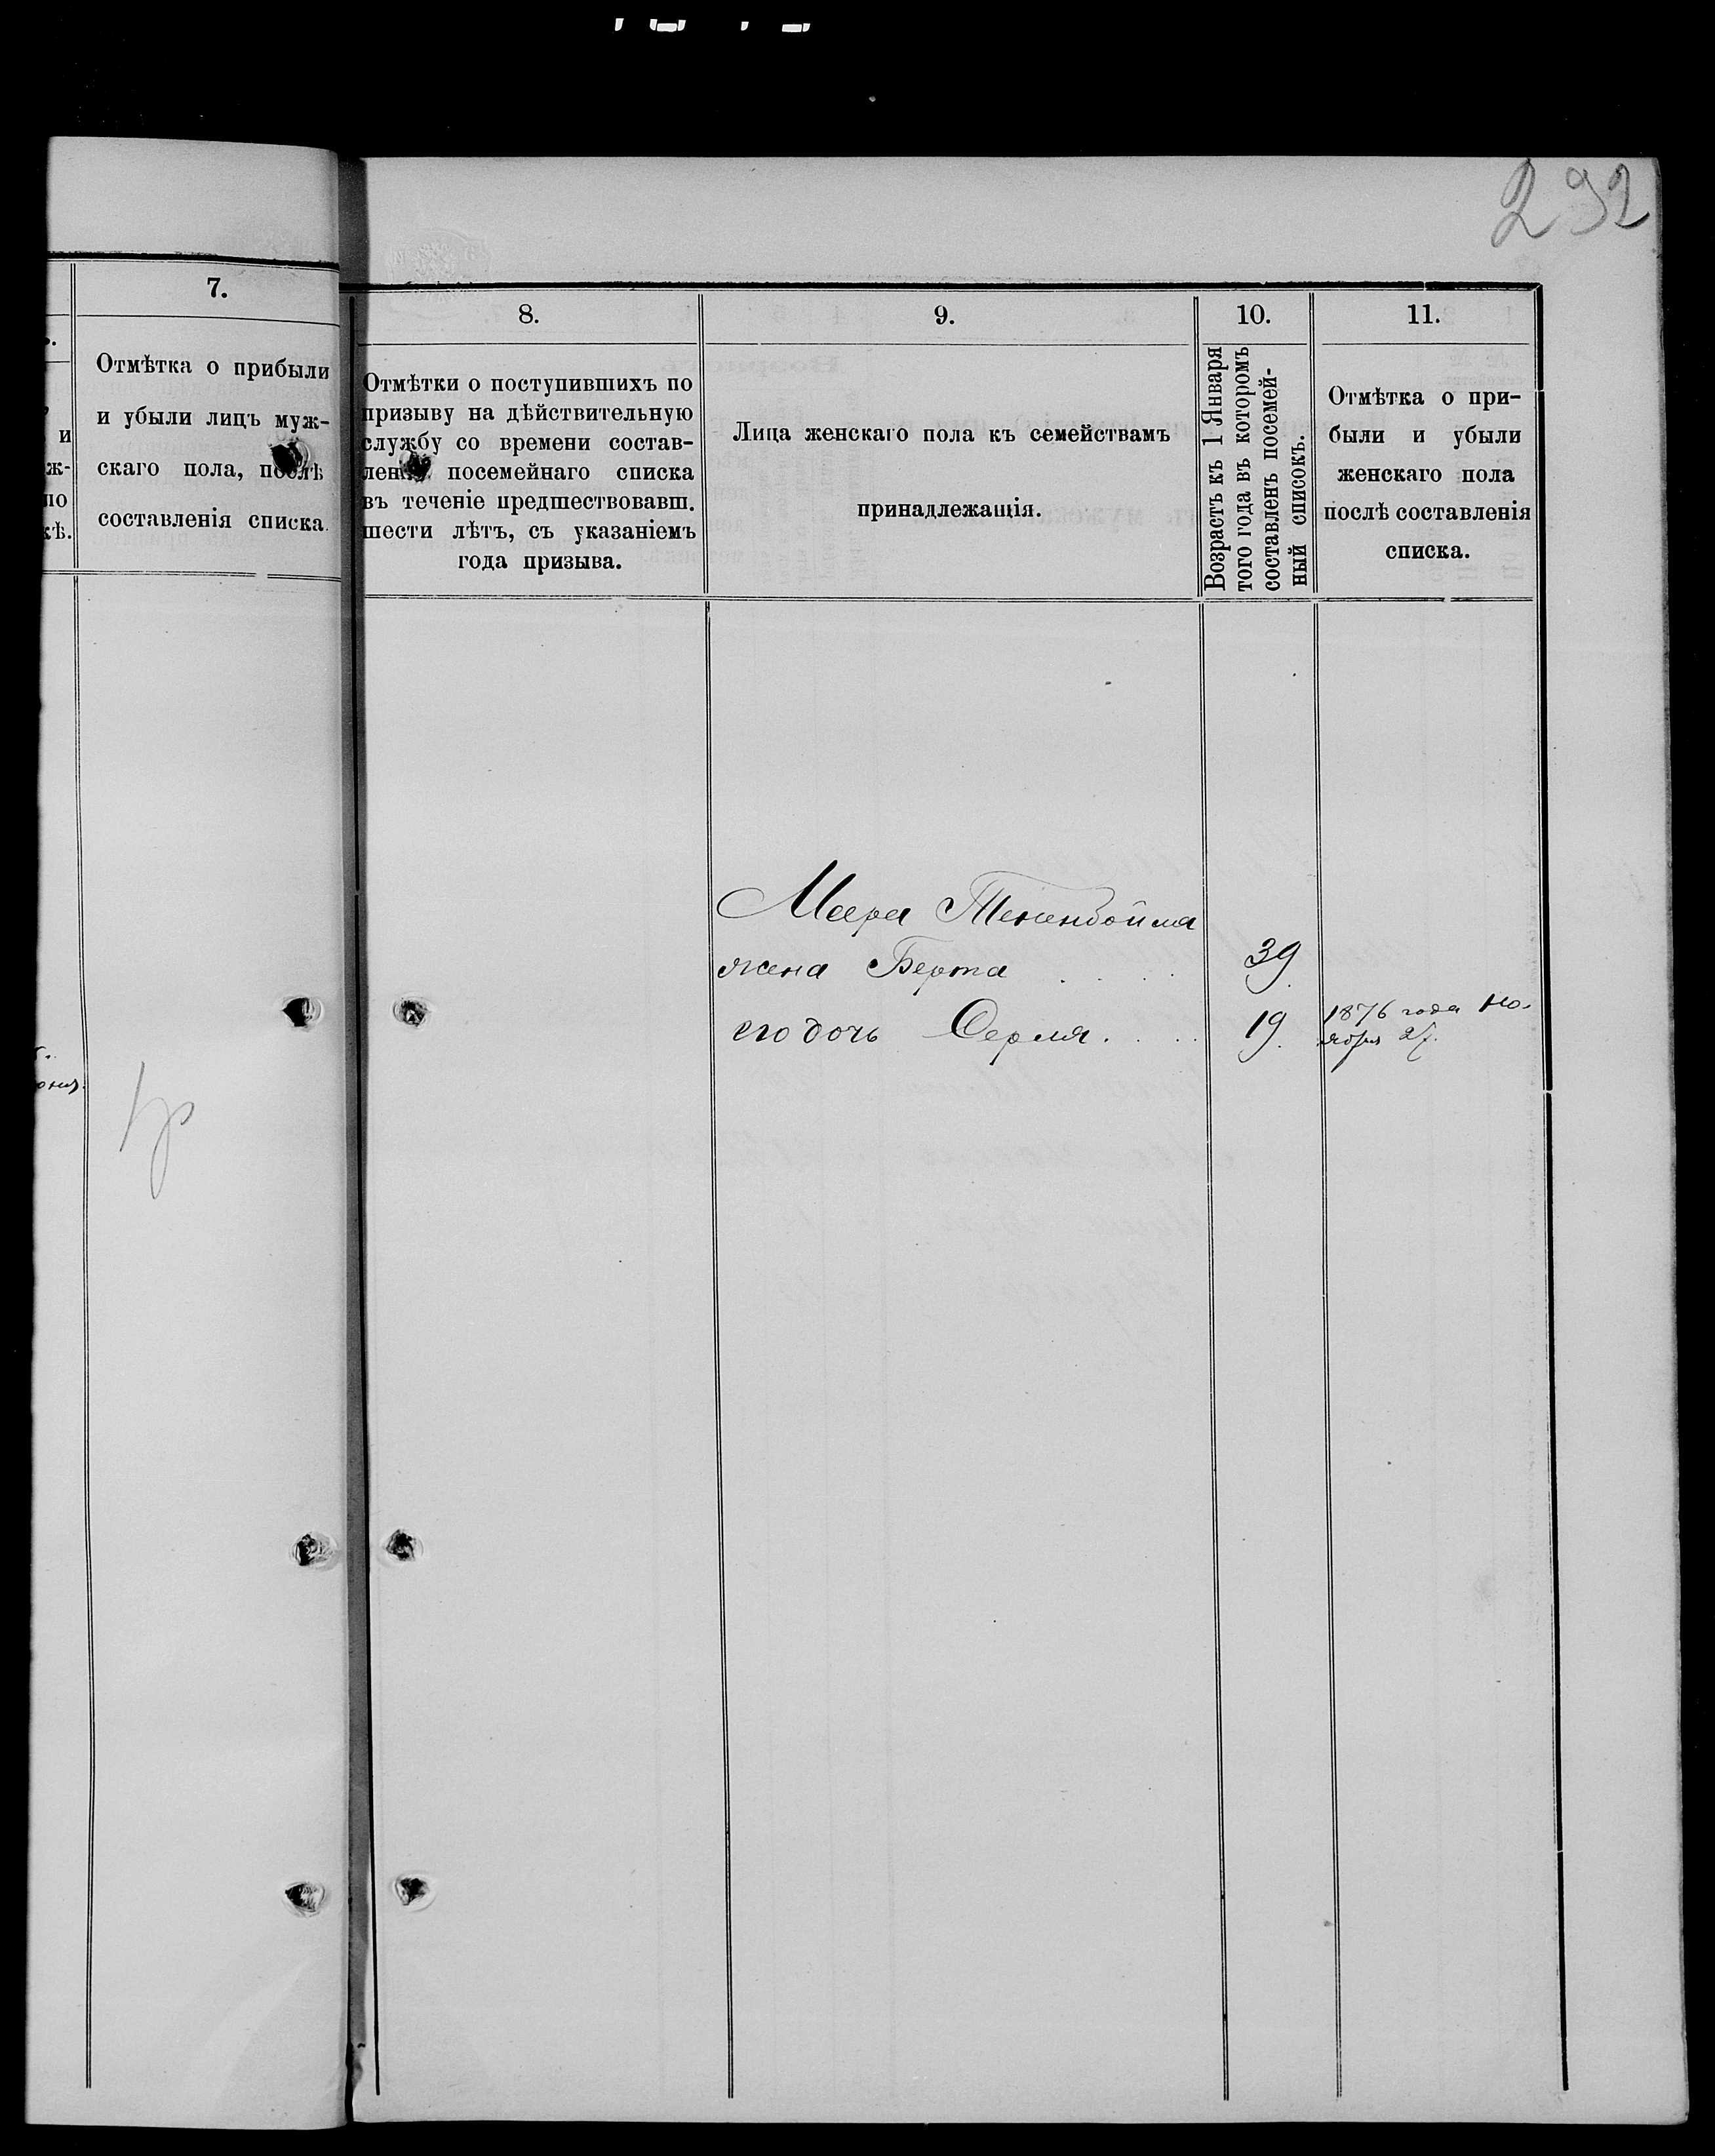 292
7.
Отмѣтка о прибыли
и убыли лицъ муж-
скаго пола, послѣ
составленія списка.
и
ж-
по
кѣ.
8.
Отмѣтки о поступившихъ по
призыву на дѣйствительную
службу со времени состав-
ленія посемейнаго списка
въ теченіе предшествовавш.
шести лѣтъ, съ указаніемъ
года призыва.
9.
Лица женскаго пола къ семействамъ
принадлежащія.
10.
Возрастъ къ 1 Января
того года въ которомъ
составленъ посемей-
ный списокъ.
11.
Отмѣтка о при-
были и убыли
женскаго пола
послѣ составленія
списка.
Меера Тененбойма
жена Берта . . . . 39.
его дочь Серля. . . . 19.
1876 года Но-
ября 27.